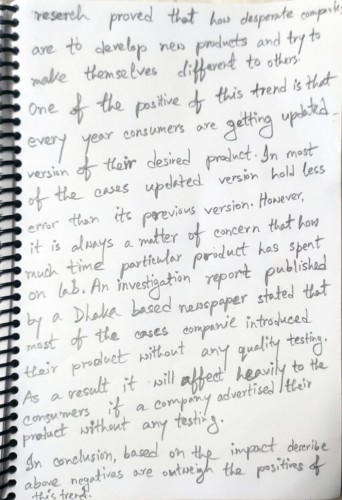 reserch proved that how desperate companies
are to develop new products and try to
make themselves different to others.
One of the positive of this trend is that
every year consumers are getting updated
version of their desired product. In most
of the cases updated version hold less
error than its previous version. However,
it is always a matter of concern that how
much time particular product has spent
on lab. An investigation report published
by a Dhaka based newspaper stated that
most of the cases companie introduced
their product without any quality testing.
As a result it will affect heavily to the
consumers if a company advertised their
product without any testing.
In conclusion, based on the impact describe
above negatives are outweigh the positives of
this trend.